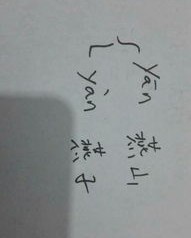 { yān 燕山
yàn 燕子